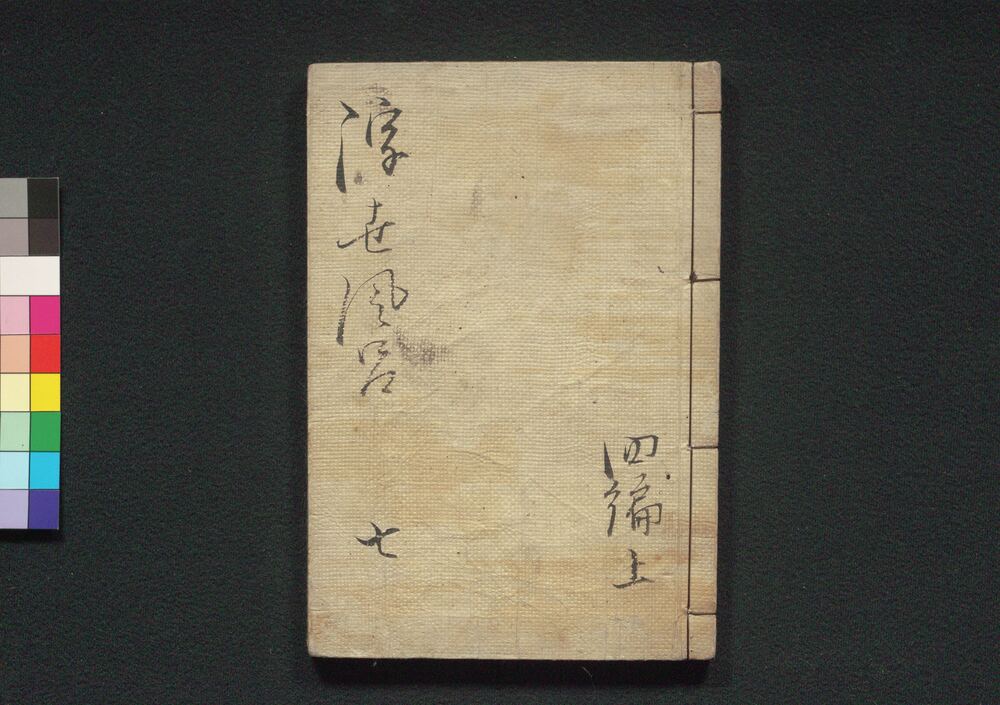 浮世風呂 七
四編 上